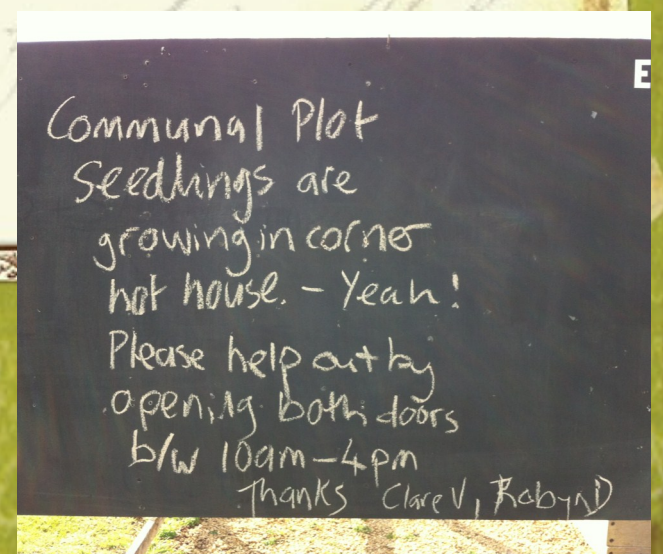 E
Communal Plot
Seedlings are
growing in corner
hot house. - Yeah!
Please help out by
opening both doors
b/w 10am-4pm
Thanks Clare V, Robyn D